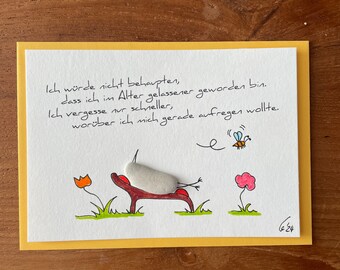 Ich würde nicht behaupten,
dass ich im Alter gelassener geworden bin.
Ich vergesse nur schneller,
worüber ich mich gerade aufregen wollte.